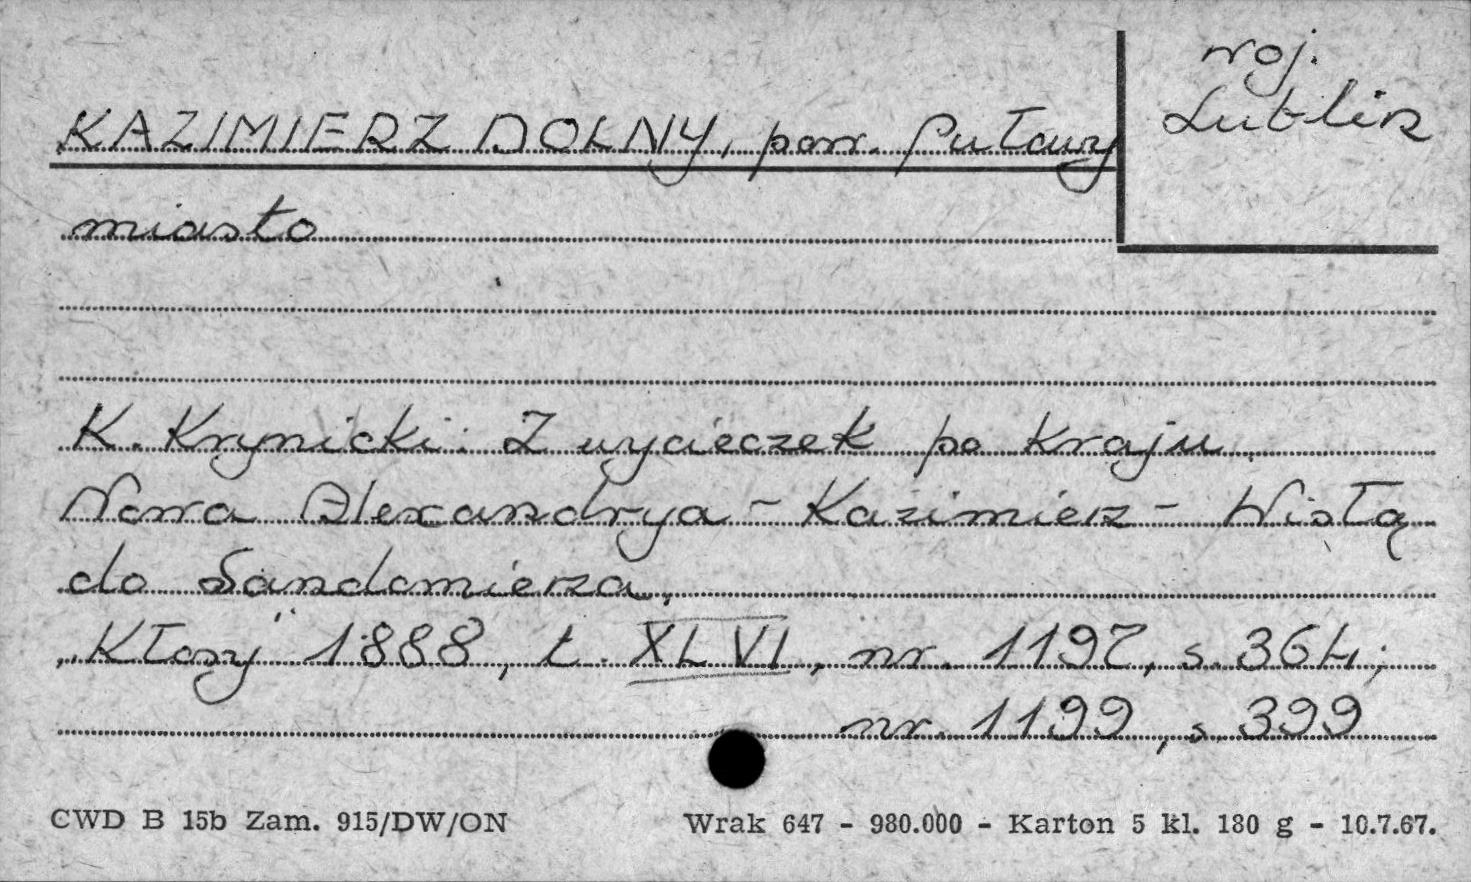 woj.
Lublin
KAZIMIERZ DOLNY, pow. Puławy
miasto
K. Krynicki: Z wycieczek po kraju.
Nowa Alexandrya - Kazimierz - Wisłą
do Sandomierza.
„Kłosy" 1888, t. XLVI, nr. 1197, s. 364;
nr. 1199, s. 399
CWD B 15b Zam. 915/DW/ON
Wrak 647 - 980.000 - Karton 5 kl. 180 g - 10.7.67.